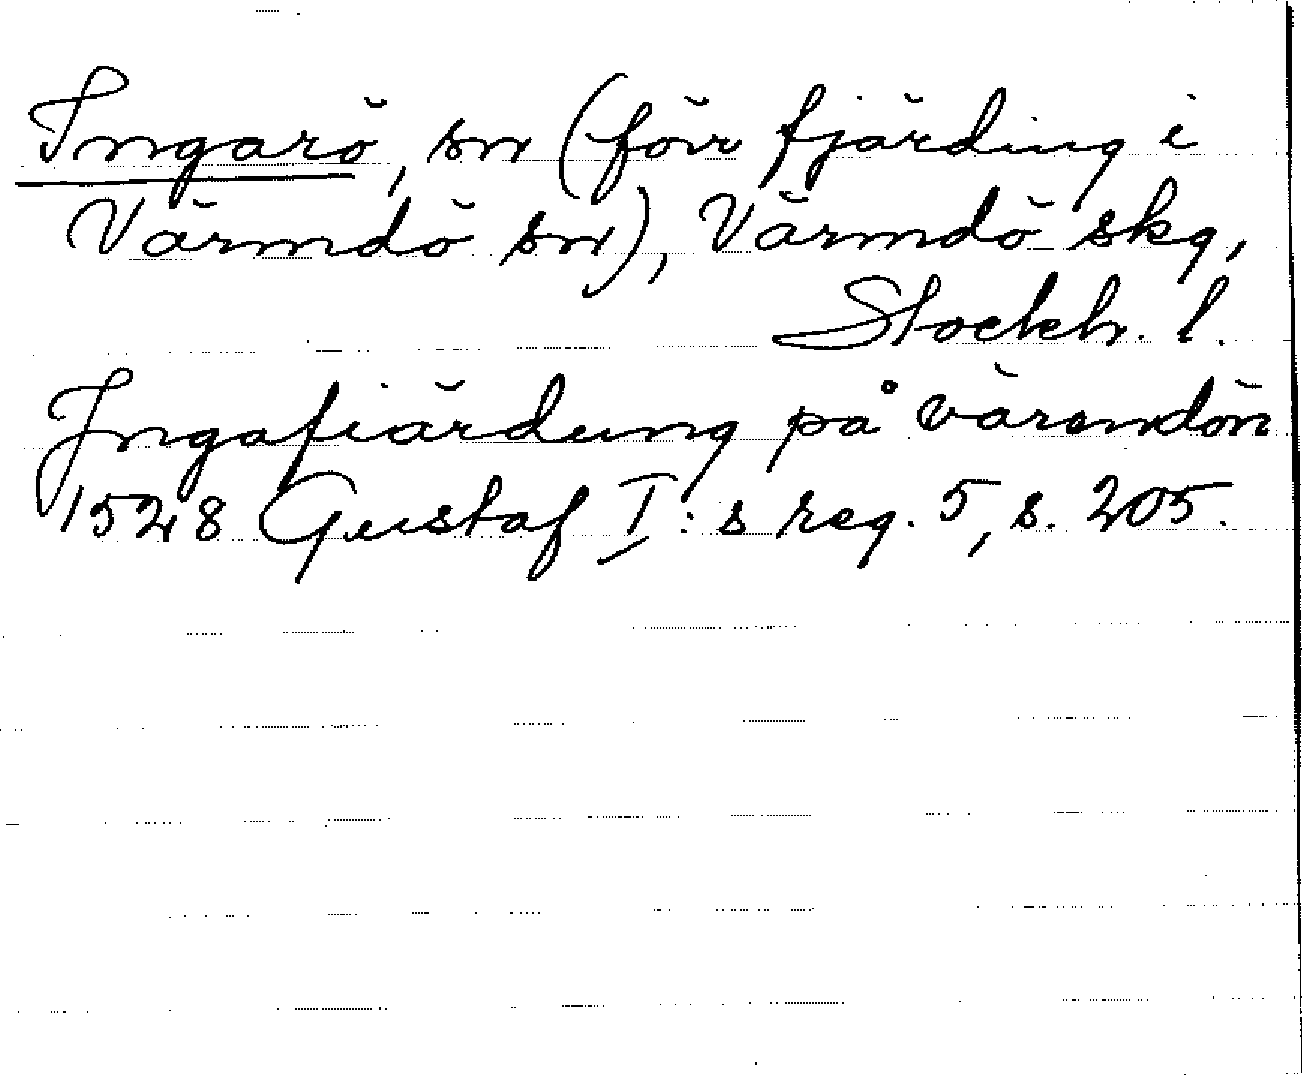 Ingarö, sn (förr fjärding i
Värmdö sn), Värmdö skg,
Stockh. l.
Jngafiärdung på värendön
1528 Gustaf I:s reg. 5, s. 205.